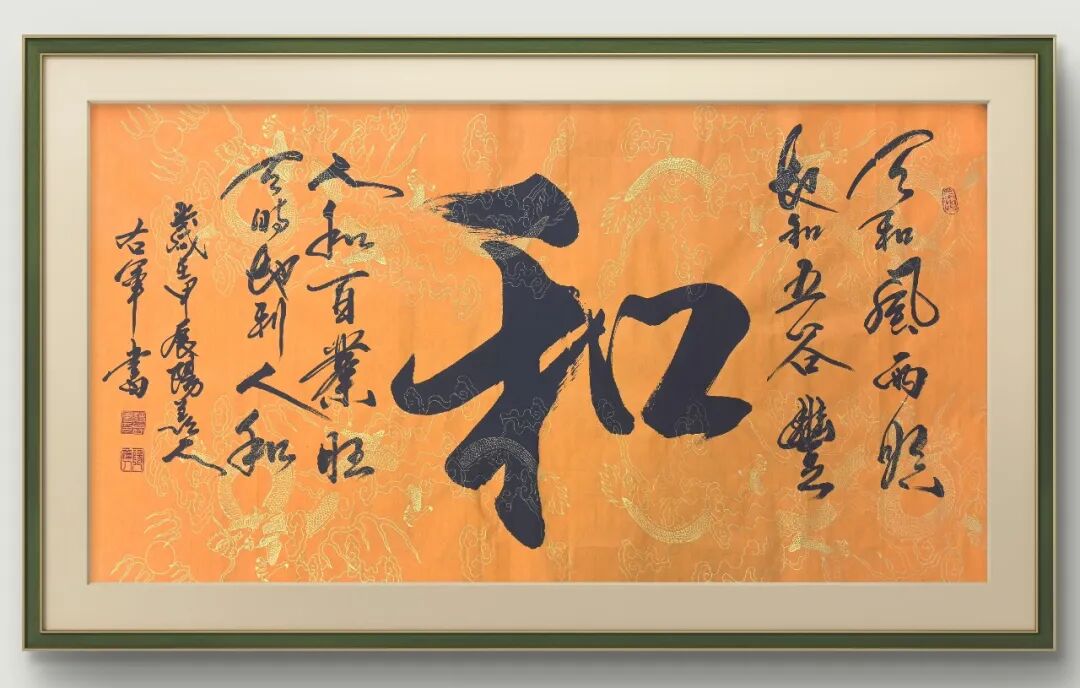 天和風雨順
地和五谷豐
和
人和百業旺
天時地利人和
歲在甲辰陽人
右軍書